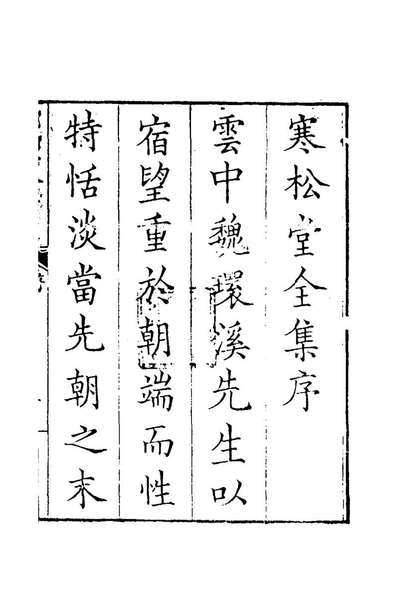 寒松堂全集序
雲中魏環溪先生以
宿望重於朝端而性
特恬淡當先朝之末